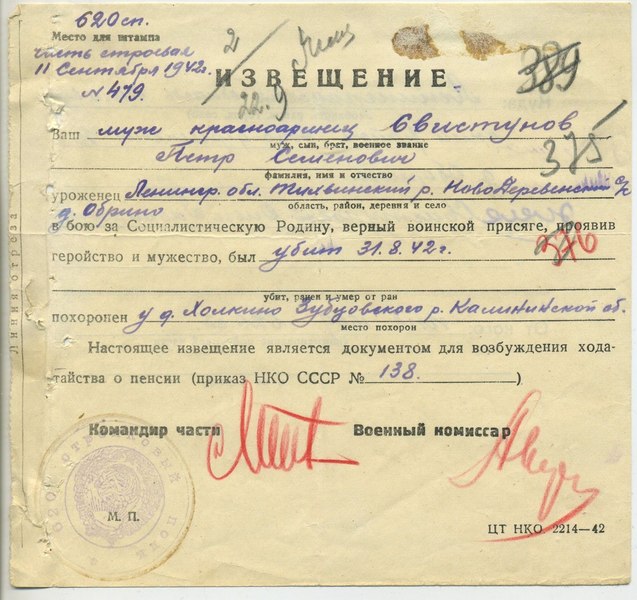 620 сп.
Место для штампа
часть строевая
11 Сентября 1942г.
N 479.
2
22.9
389
ИЗВЕЩЕНИЕ
Ваш муж красноармеец Свистунов
муж, сын, брат, военное звание
375
Петр Семенович
фамилия, имя и отчество
уроженец Ленингр. обл. Тихвинский р. НовоДеревенский с/с
д. Обрино
область, район, деревня и село
в бою за Социалистическую Родину, верный воинской присяге, проявив
376
геройство и мужество, был убит 31.8.42г.
убит, ранен и умер от ран
похоронен у д. Холкино Зубцовского р. Калининской об.
место похорон
Настоящее извещение является документом для возбуждения хода-
тайства о пенсии (приказ НКО СССР № 138.)
Командир части Военный комиссар
М. П.
ЦТ НКО 2214—42
Линия отреза